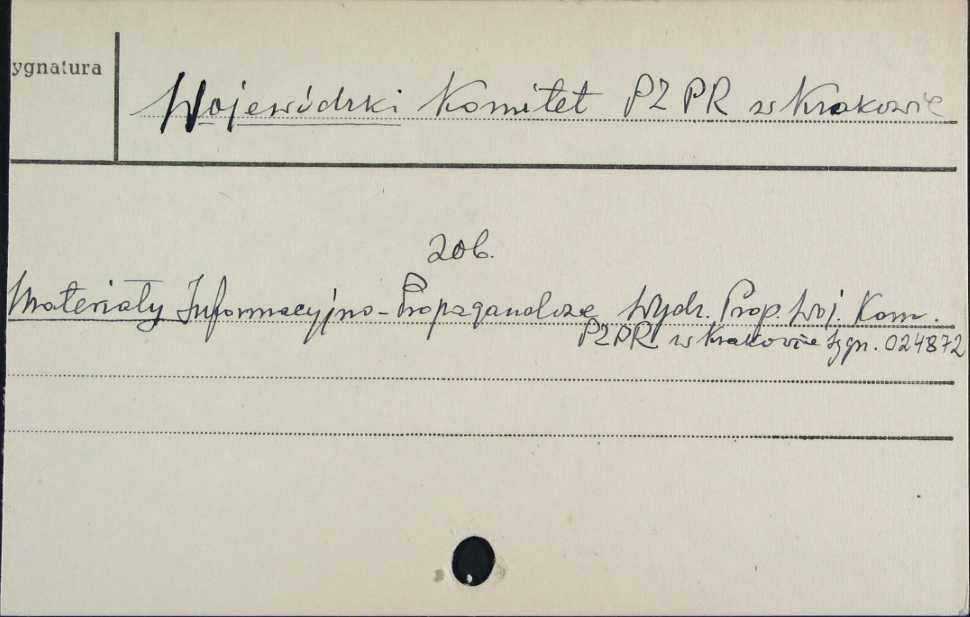 ygnatura
Wojewódzki Komitet PZPR w Krakowie
Zob.
Materiały Informacyjno-Propagandcze Wydz. Prop. Woj. Kom.
PZPR w Krakowie Sygn. 024872